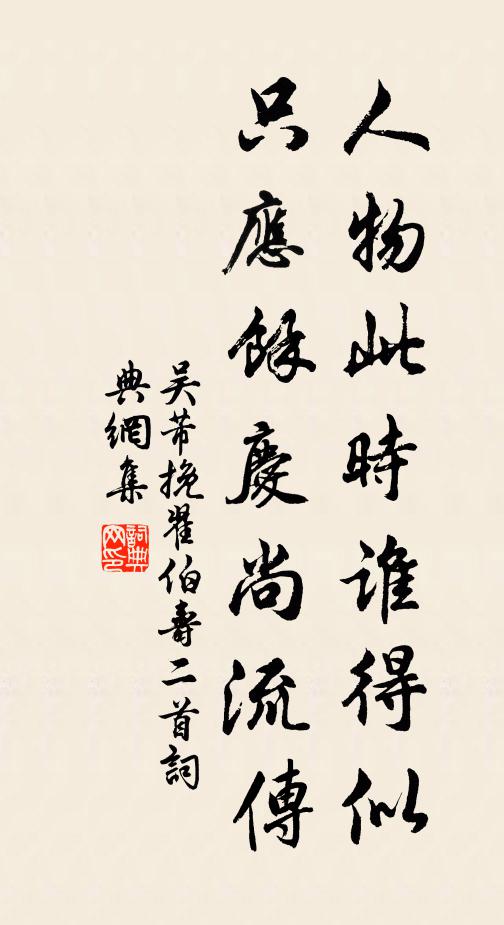 人物此時誰得似
只應餘慶尚流傳
吳芾挽翟伯壽二首詞
典網集
詞典
網印